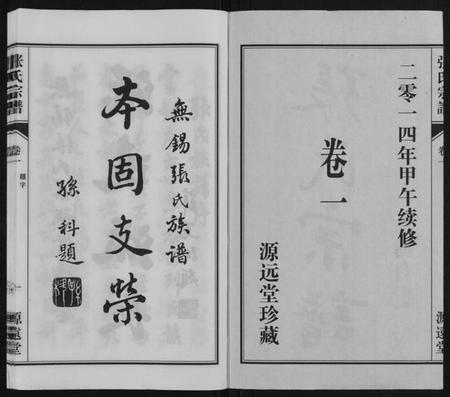 張氏宗譜
卷一
源远堂
二零一四年甲午续修
卷一
源远堂珍藏
無錫張氏族譜
本固支榮
孫科題
張氏宗譜
卷一
題字
源远堂